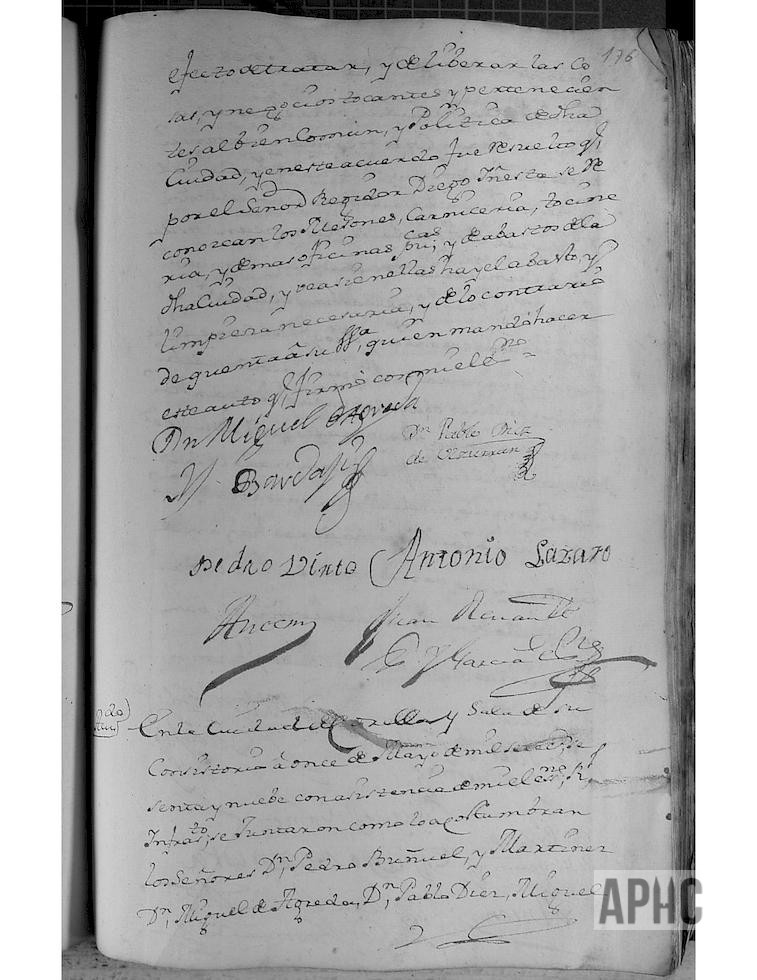 176
efecto de tratar, y deliberar las Co
sas, y negocios tocantes y pertenecien
tes al bien Comun, y Politica de dha
Ciudad, y en este acuerdo fue resuelto q,
por el Señor Regidor Diego Iñesta se re
conozcan los Mesones, Carniceria, tocine
ria, y demas oficinas pu,cas y de abastos de la
dha Ciudad, y vea si en ellas hay el abasto, y
limpieza necesaria, y de lo contrario
de quenta à su Ssa, quien mandó hacer
este auto q, firmò con mi el esno =
Dn Miguel de Agreda
Dn Pablo Diez
de Ulzurrun
y Bardaji
Pedro Vinto Antonio Lazaro
Ancem
Juan Renault
y Garcia
En la Ciudad de y Sala de su
Consistorio à once de Mayo de mil setecse
senta y nuebe con asistencia de mi el essno, R,
Infrasto, se Juntaron como lo acostumbran
los Señores Dn, Pedro Buñuel, y Martinez
Dn, Miguel de Agreda, Dn, Pablo Diez, Miguel
APHC